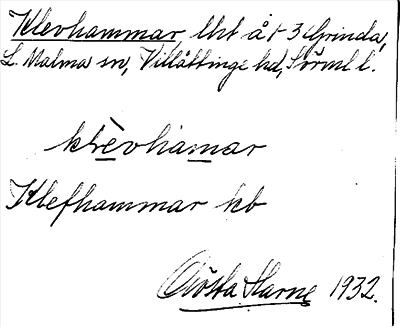 Klevhammar lht å t 3 Grinda,
L. Malma sn, Villåttinge hd, Sörml l.
klèvhamar
Klefhammar kb
Gösta Harne 1932.